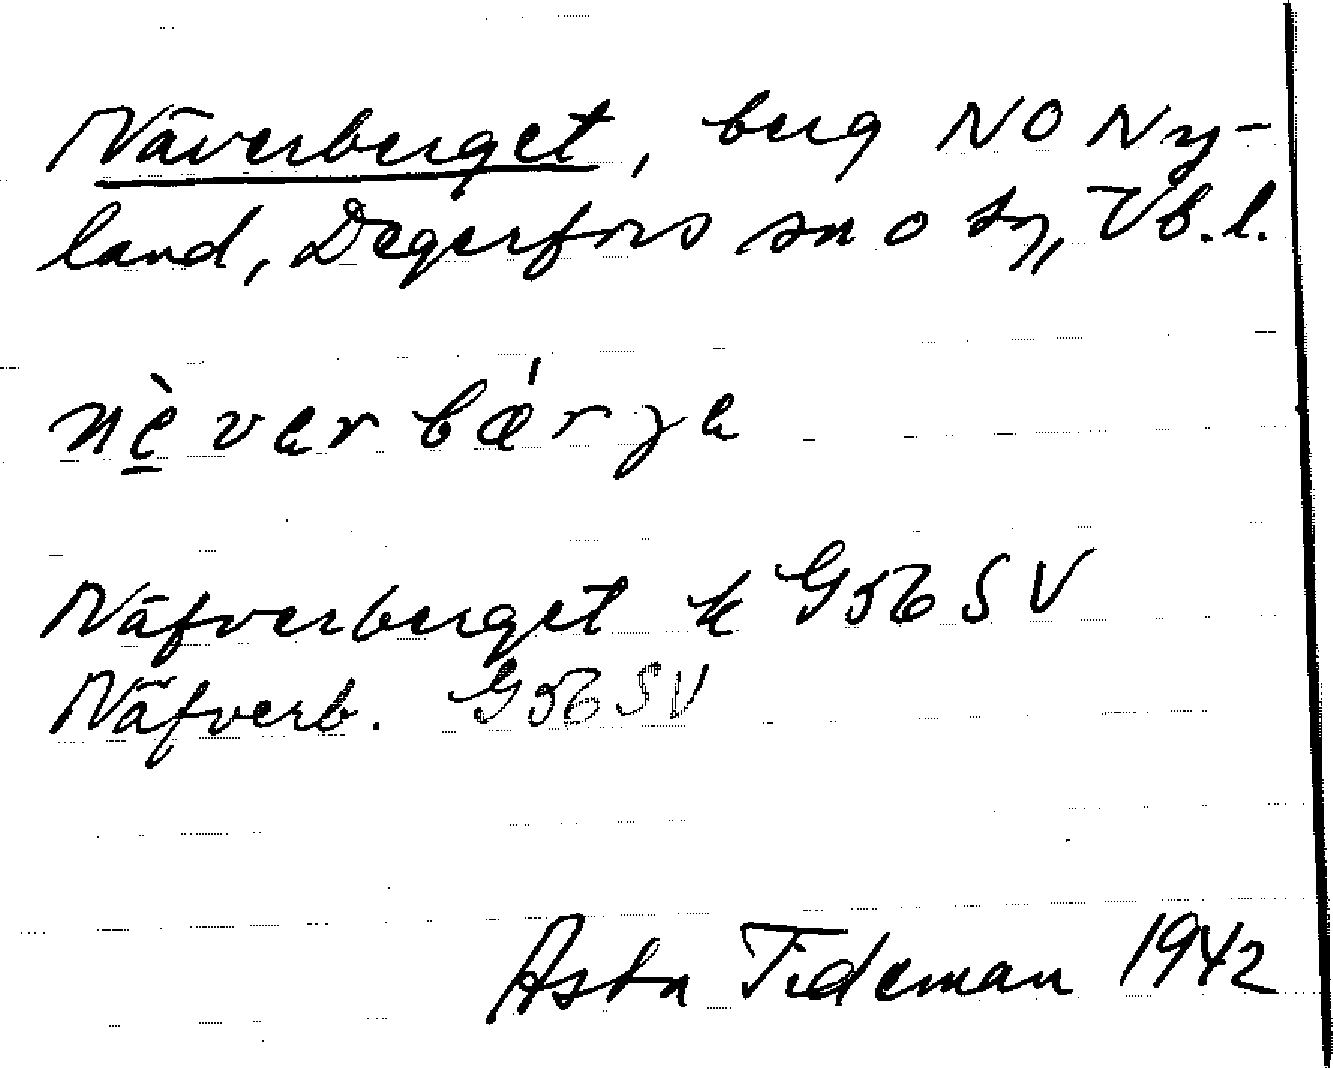 Näverberget, berg NO Ny-
land, Degerfors sn o sg, Vb.l.
nè̱verbǽrge
Näfverberget k G56SV
Näfverb. G56SV
Asta Tideman 1942